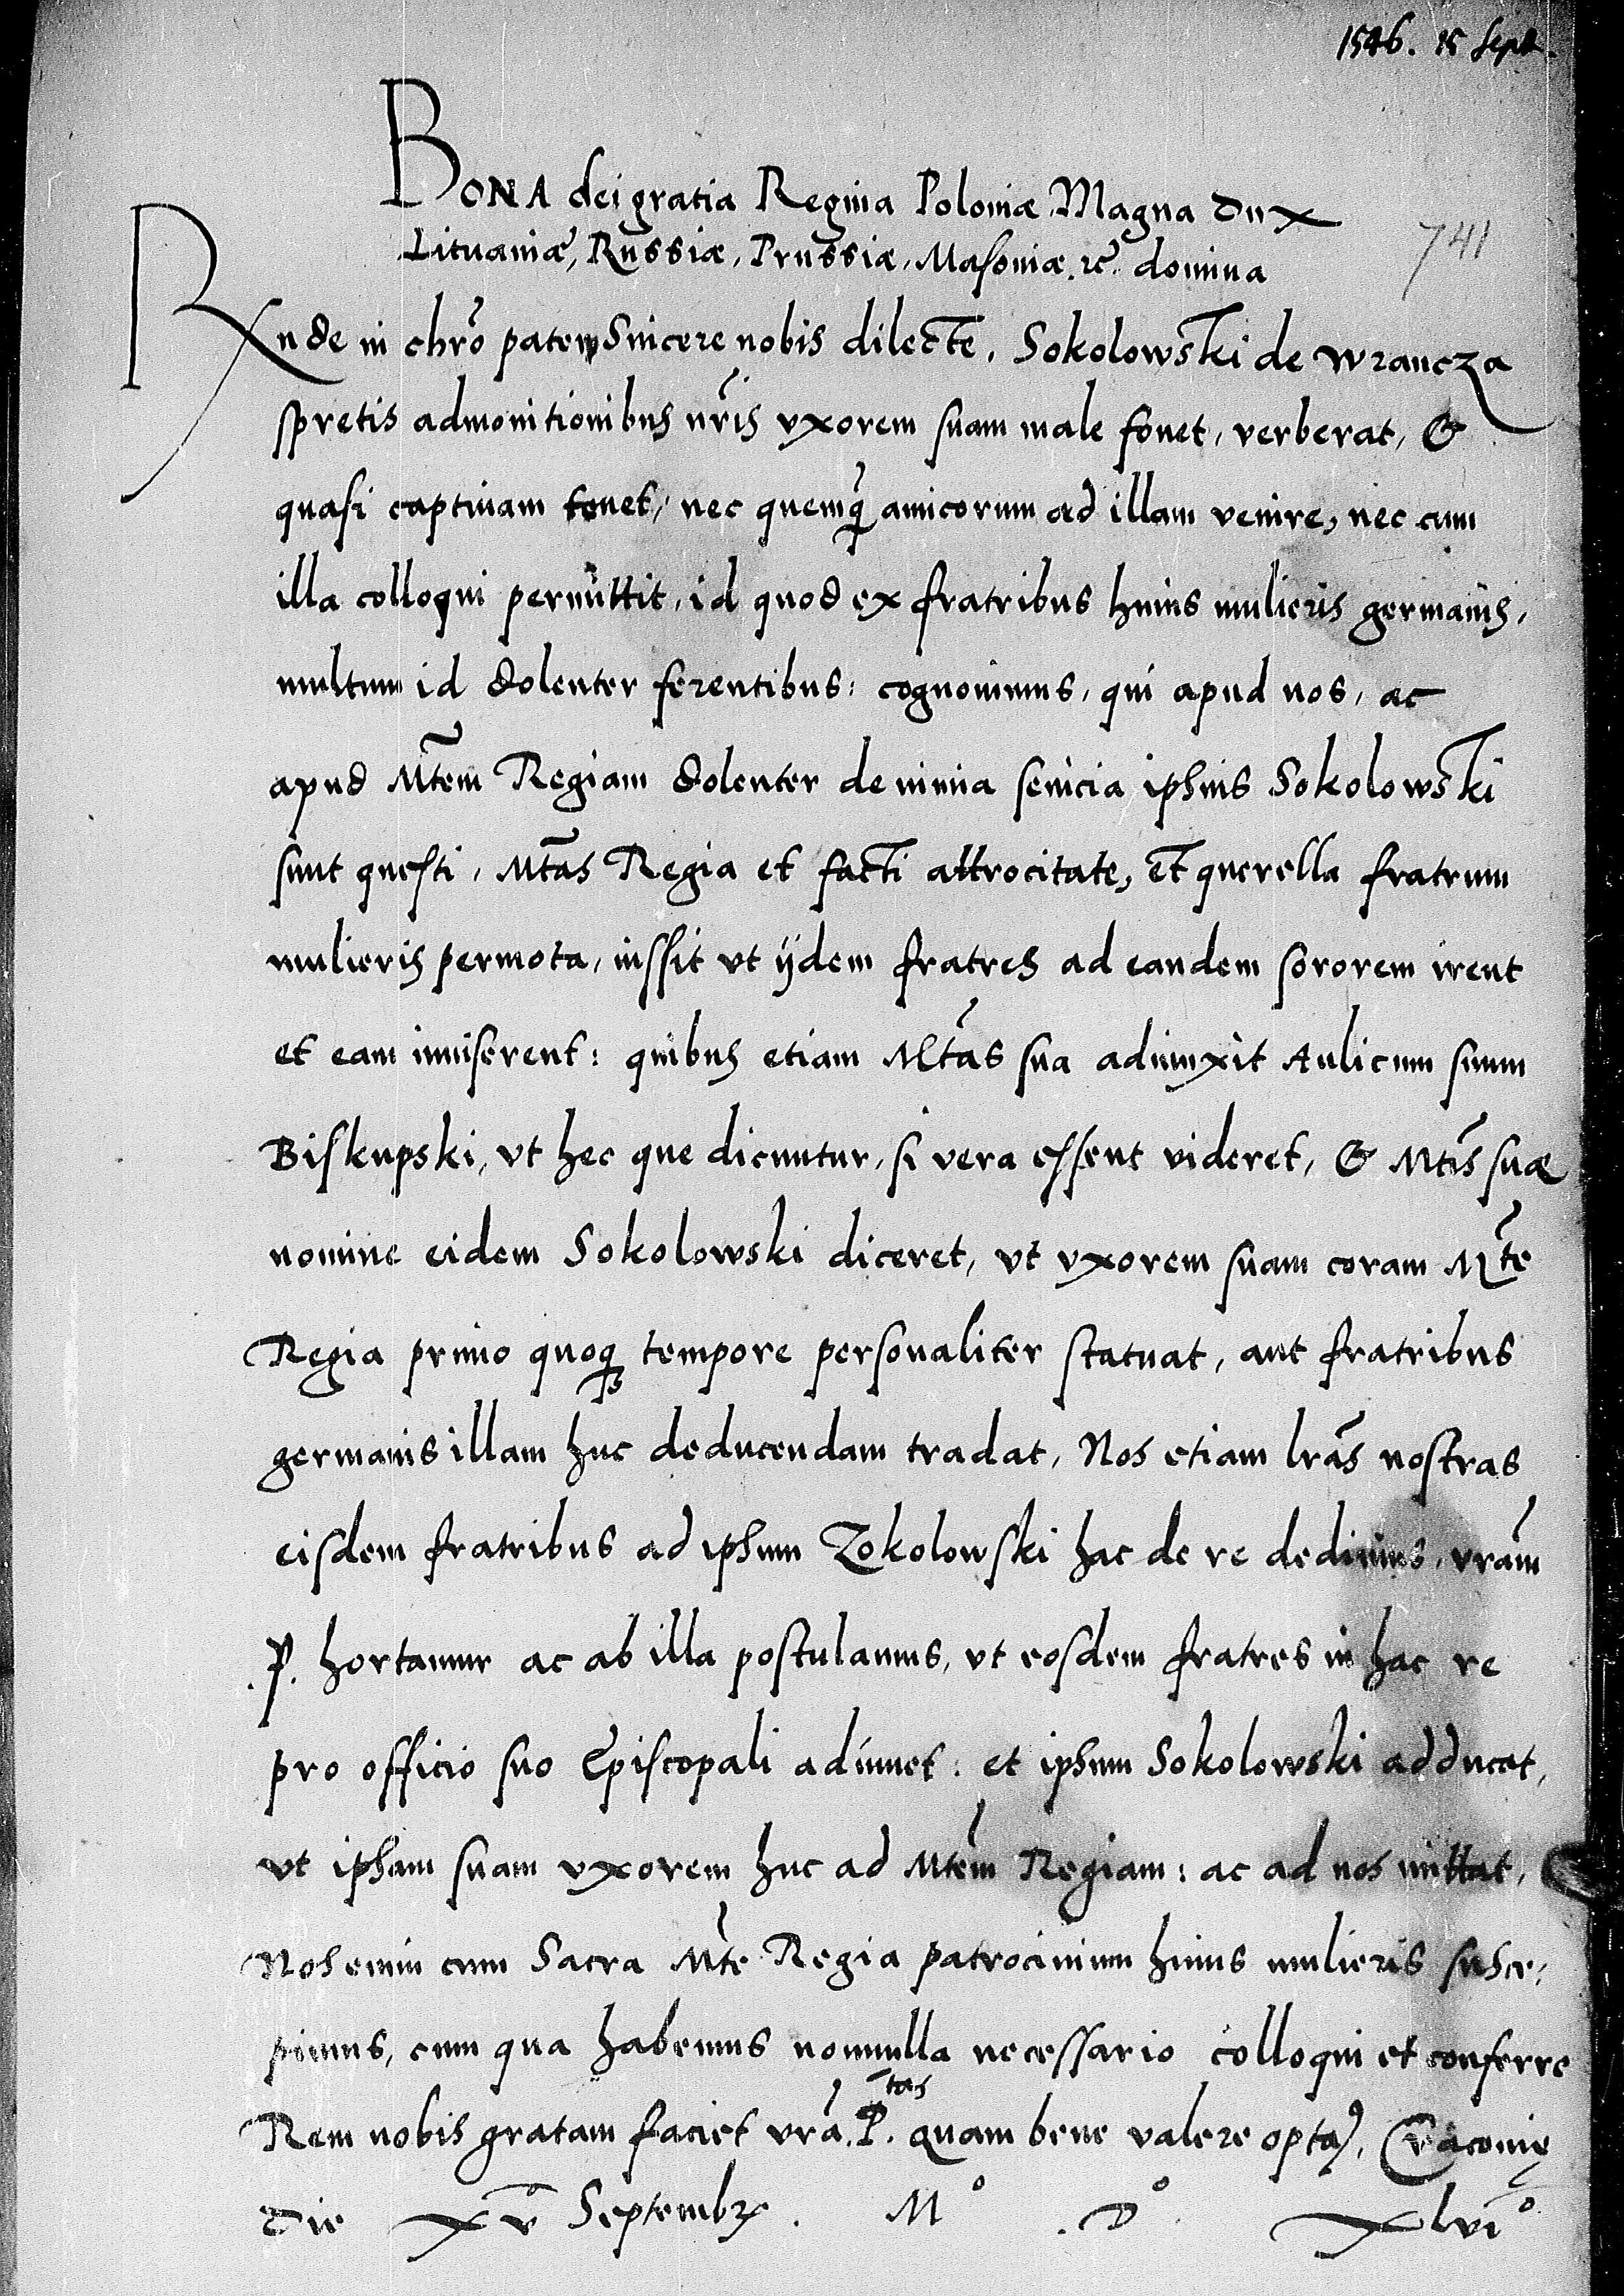 1546. 15 Sept.
BONA dei gratia Regina Poloniæ Magna Dux
741
Lituaniæ, Russiæ, Prussiæ, Masoniæ. rc̃. domina
Rnde in chrõ pater Sincere nobis dilecte, Sokolowski de Wrancza
spretis admonitionibus nr̃is vxorem suam male fouet, verberat, &
quasi captiuam tenet, nec quemq̃ amicorum ad illam venire, nec cum
illa colloqui permittit, id quod ex fratribus huius mulieris germanis,
multum id dolenter ferentibus: cognouimus, qui apud nos, ac
apud Mtẽm Regiam dolenter de nimia seuicia ipsius Sokolowski
sunt questi, Mtãs Regia et facti attrocitate, et querella fratrum
mulieris permota, iussit vt ijdem fratres ad eandem sororem irent
et eam inuiserent: quibus etiam Mtãs sua adiunxit Aulicum suum
Biskupski, vt hec que dicuntur, si vera essent videret, & Mtis̃ suæ
nomine eidem Sokolowski diceret, vt vxorem suam coram Mtẽ
Regia primo quoq; tempore personaliter statuat, aut fratribus
germanis illam huc deducendam tradat, Nos etiam lrãs nostras
eisdem fratribus ad ipsum Zokolowski hac de re dedimus, vrãm
.P. hortamur ac ab illa postulamus, vt eosdem fratres in hac re
pro officio suo Episcopali adiuuet: et ipsum Sokolowski adducat,
vt ipsam suam vxorem huc ad Mtẽm Regiam: ac ad nos mittat,
Nos enim cum Sacra Mtẽ Regia patrocinium huius mulieris susce:
pimus, cum qua habemus nonnulla necessario colloqui et conferre
Rem nobis gratam faciet vrã .P.tas quam bene valere optam9, Cracouię
Die xv̊ Septembr̃. M° .D°. xlvi°